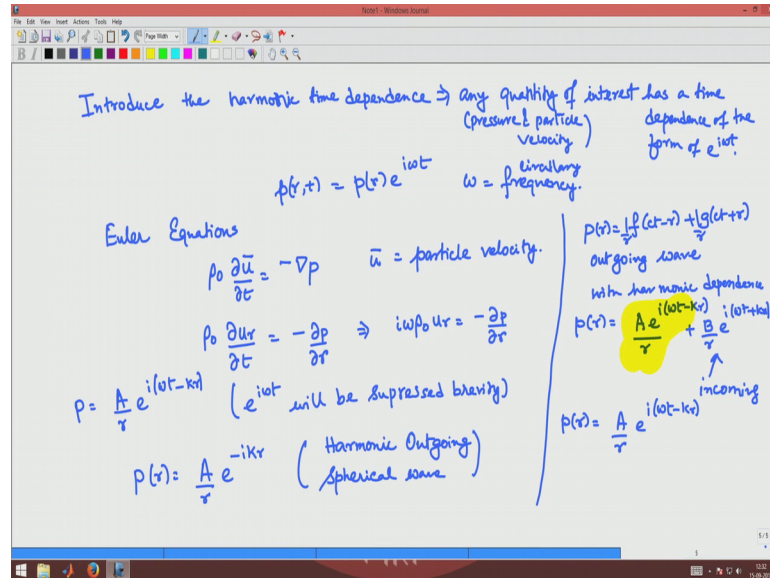 Note1 - Windows Journal
File Edit View Insert Actions Tools Help
Page Width
B I
Introduce the harmonic time dependence ⇒ any quantity of interest has a time
(pressure & particle velocity)
dependence of the
form of e^{iωt}.
p(r,t) = p(r) e^{iωt}
ω = circulary frequency.
Euler Equations
ρ₀ ∂ū/∂t = -∇p
ū = particle velocity.
ρ₀ ∂u_r/∂t = -∂p/∂r ⇒ iωρ₀u_r = -∂p/∂r
p = A/r e^{i(ωt-kr)} (e^{iωt} will be supressed brevity)
p(r) = A/r e^{-ikr} (Harmonic Outgoing
Spherical wave)
p(r) = 1/r f(ct-r) + 1/r g(ct+r)
outgoing wave
with harmonic dependence
p(r) = A e^{i(ωt-kr)}/r + B/r e^{i(ωt+kr)}
incoming
p(r) = A/r e^{i(ωt-kr)}
5/5
5
12:32